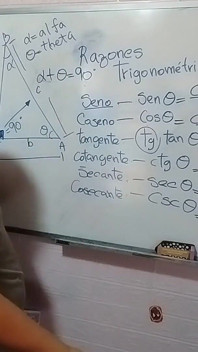 α = alfa
θ = theta
B
α
α + θ = 90°
c
90°
θ
b
A
Razones
Trigonométri
Seno — Sen θ =
Coseno — Cos θ =
tangente — tg tan θ
Cotangente — ctg θ =
Secante. — Sec θ =
Cosecante — Csc θ =